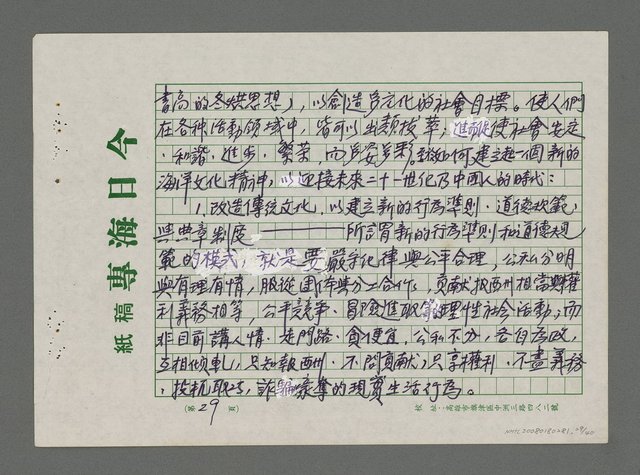 書高的冬烘思想」，以創造多元化的社會目標。使人們
在各種活動領域中，皆可以出類拔萃，進而促使社會安定
、和諧、進步、繁榮，而多姿多彩。至於如何建立起一個新的
海洋文化精神，以迎接未來二十一世紀乃中國人的時代：
1.改造傳統文化，以建立新的行為準則、道德規範，
與典章制度——所謂新的行為準則和道德規
範的模式，就是要嚴守紀律與公平合理，公私分明
與有理有情，服從團隊與分工合作，貢献報酬相當與權
利義務相等，公平競爭、冒險進取等理性社会活動；而
非目前講人情、走門路、貪便宜，公私不分，各自為政，
互相傾軋，只知報酬、不問貢献，只享權利、不盡義務
、投机取巧，詐騙豪奪的現實生活行為。
今日海專
稿紙
(第29頁)
校址：高雄市旗津區中洲三路四八二號
NMTL20080180281_29/40